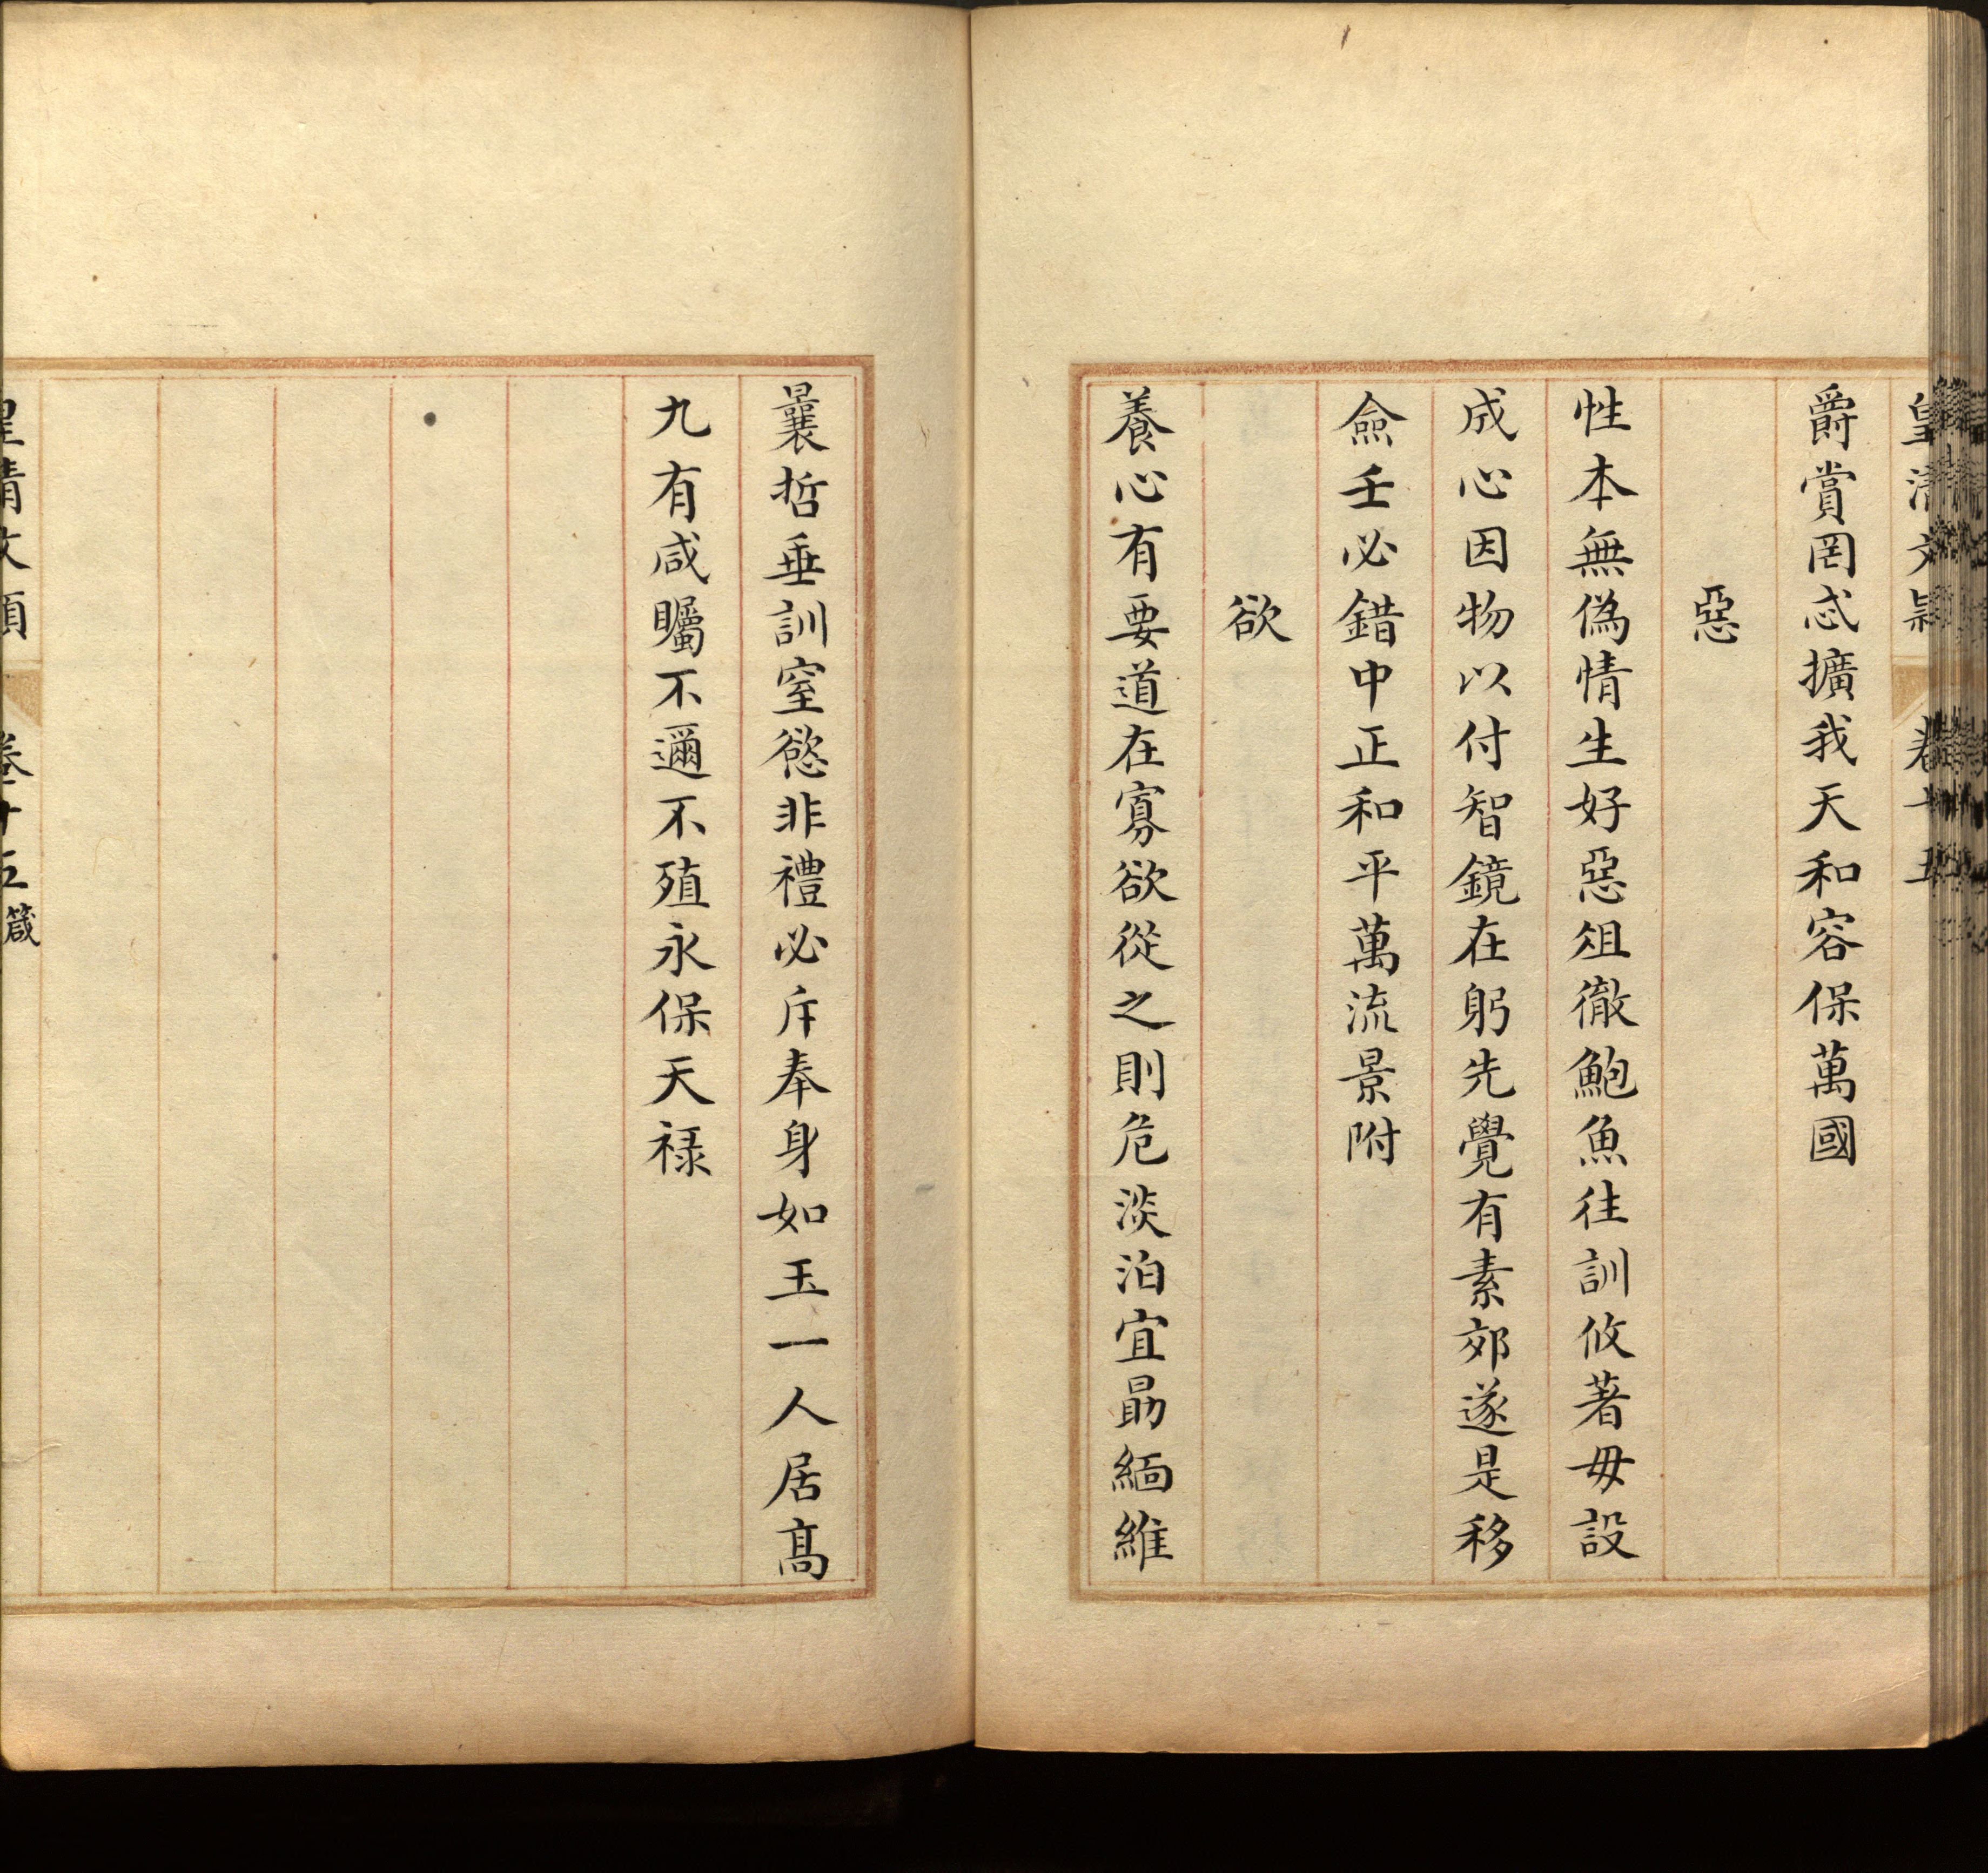 皇清文穎 卷十五
爵賞罔忒擴我天和容保萬國
惡
性本無偽情生好惡俎徹鮑魚往訓攸著毋設
成心因物以付智鏡在躬先覺有素郊遂是移
僉壬必錯中正和平萬流景附
欲
養心有要道在寡欲從之則危淡泊宜勗緬維
曩哲垂訓窒慾非禮必斥奉身如玉一人居髙
九有咸矚不邇不殖永保天禄
皇清文穎 卷十五 箴